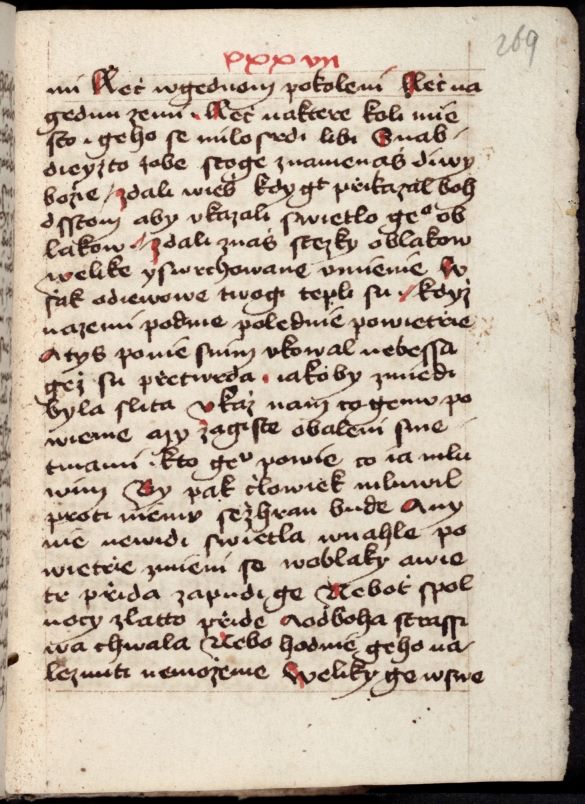 xxxvii
269
mi Neč wgednom pokoleni Neč na
gedun zemi . Neč naktere koli mie
sto . geho se milosrdi libi Snabi
dieyz to tobe stoge znamenaš diwy
božie / zdali wieš kdy gt přikazal boh
dsstom aby vkazali swietlo geº ob
lakow . zdali znaš stezky oblakow
welike y swrchowane vmienie W
šak odiewowe twogi tepli su . když
nazemi podme polednie powietřie
Atys ponie snim vkowal nebessa
gež su přetwrda . iakoby zmiedi
byla slita Vkaž nam co gemu po
wieme azy zagiste obaleni sme
tmami . kto geᵛ powie co ia mlu
wim By pak člowiek mluwil
proti niemu sežhran bude Any
nie newidi swietla wnahle po
wietřie zmieni se woblaky awie
tr přida zapudi ge Neboť spol
nocy zlatto přide Aodboha strassi
wa chwala Nebo hodnie geho na
lezniti nemožeme Weliky ge wswe